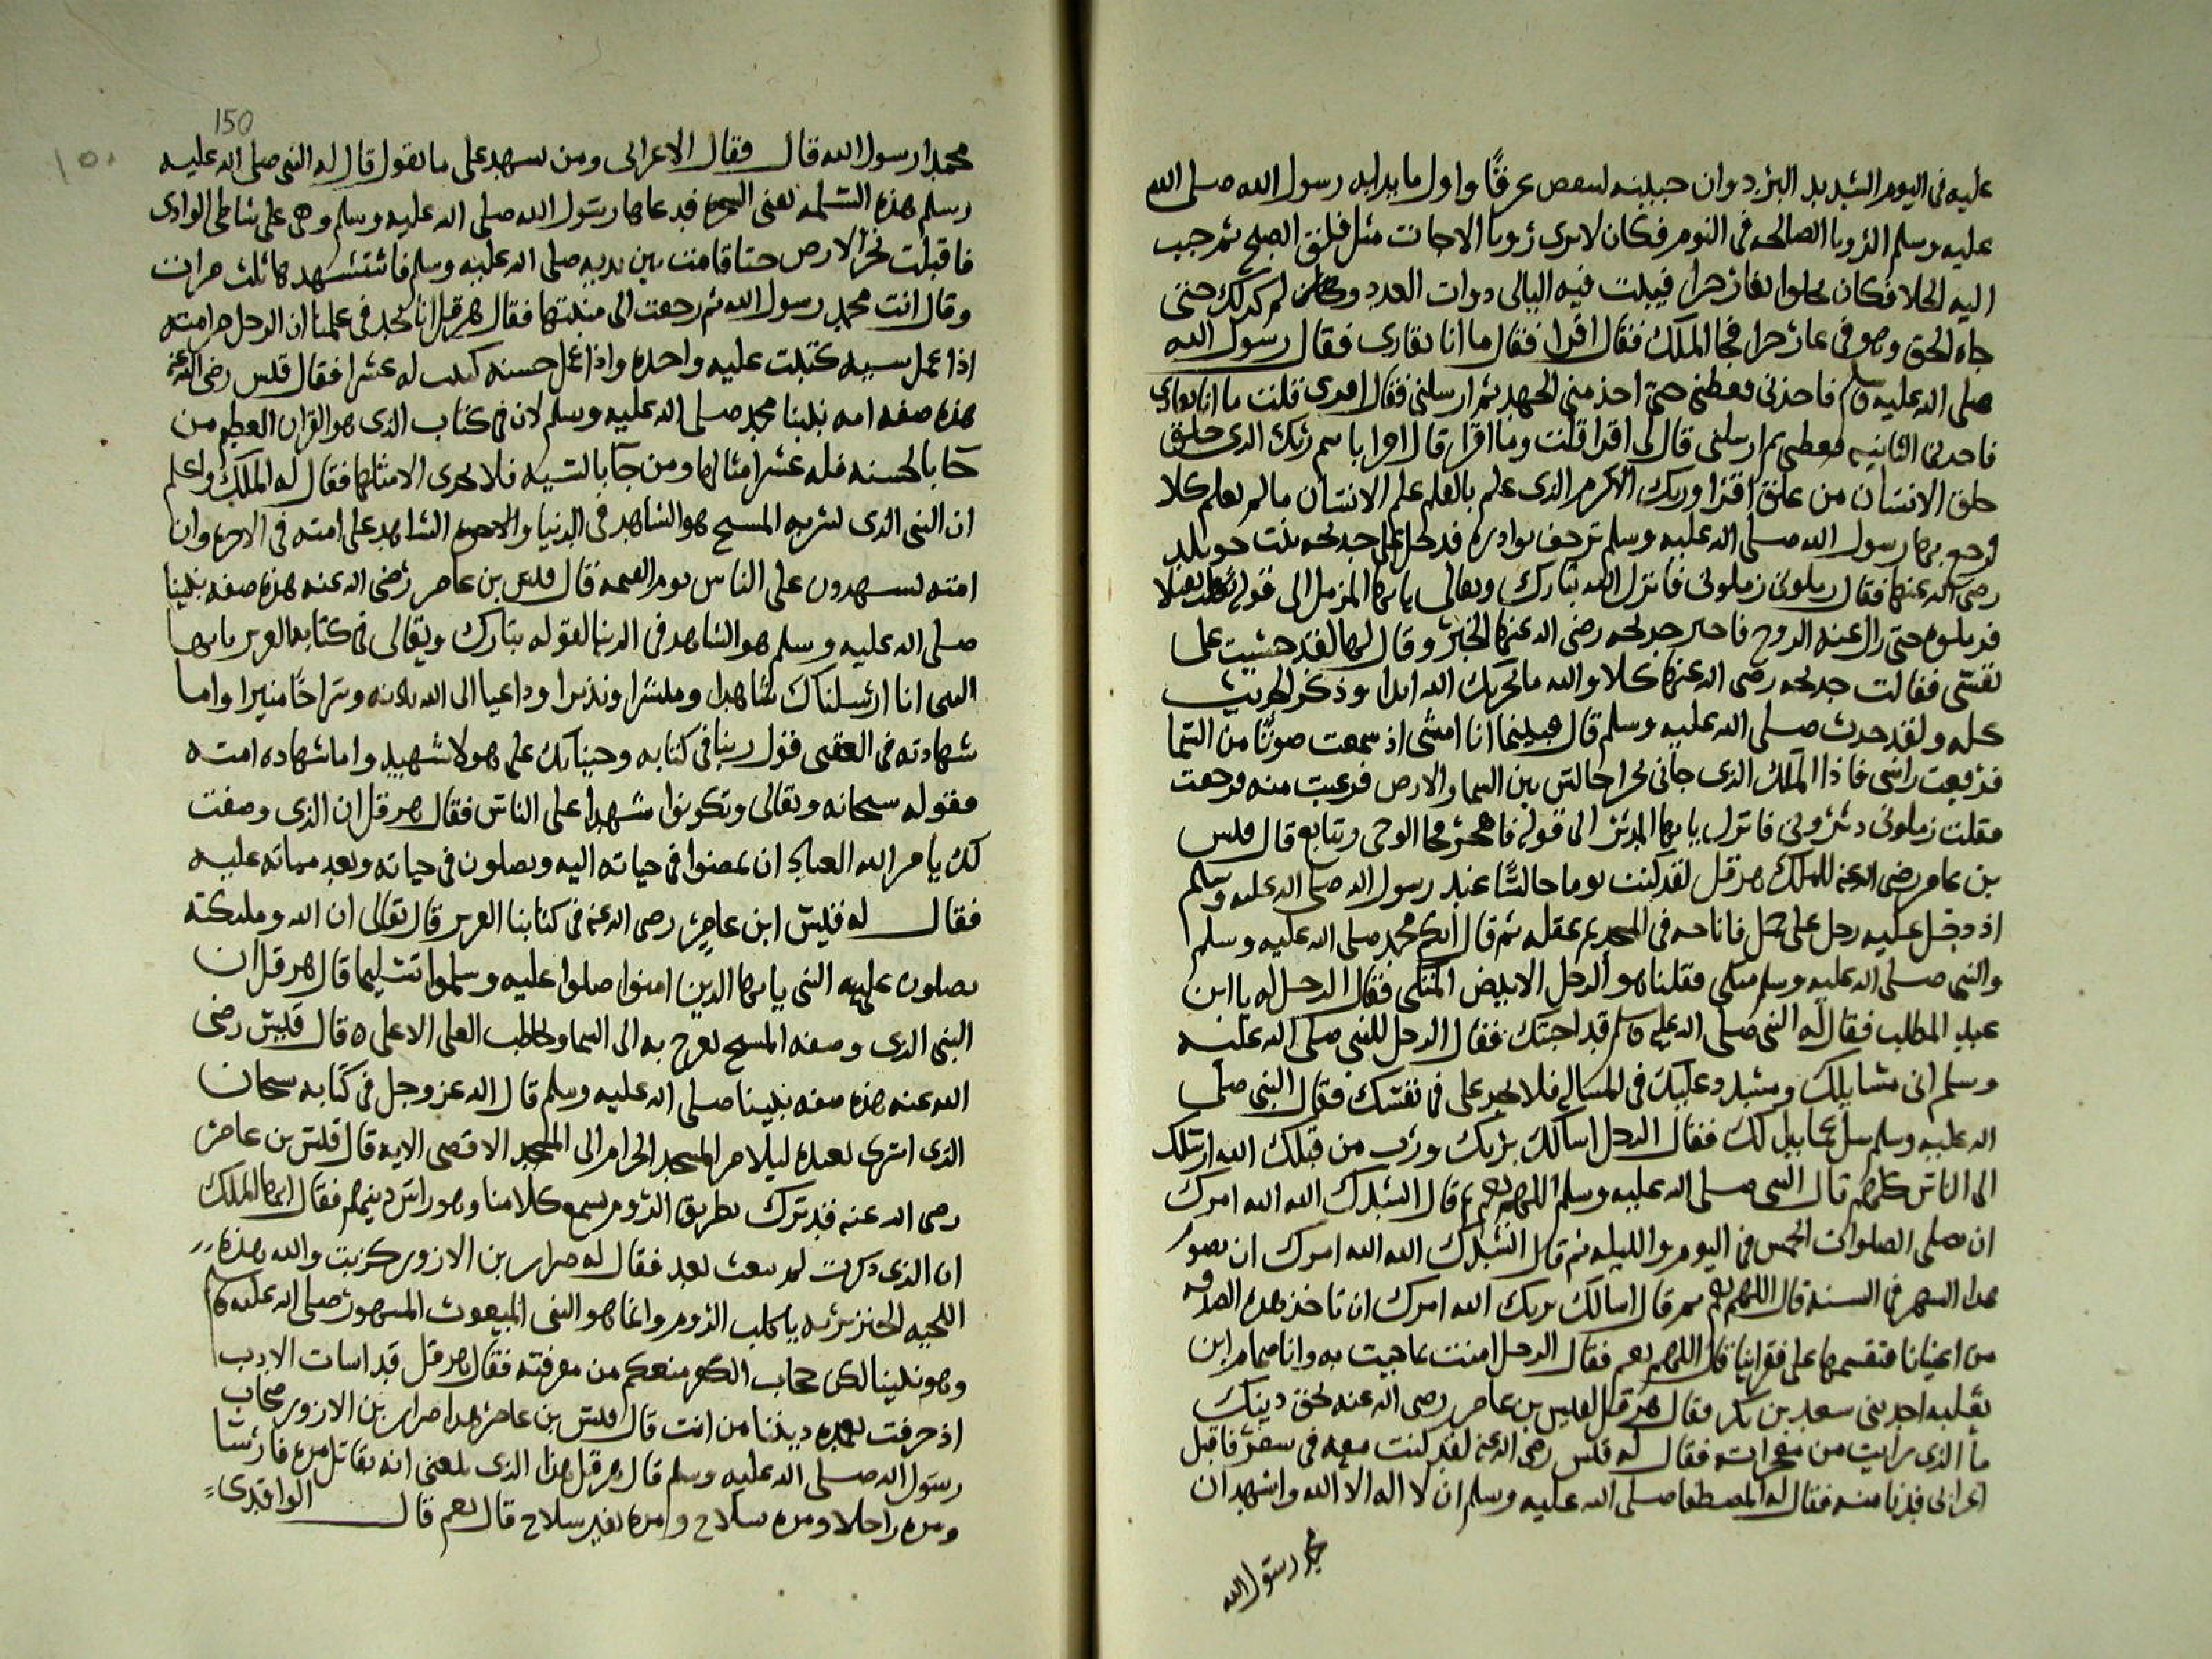 عليه فى اليوم الشديد البرد وان جبينه ليتفصد عرقا واول ما بدا به رسول الله صلى الله
عليه وسلم الرؤيا الصالحه فى النوم فكان لا يرى رؤيا الا جات مثل فلق الصبح ثم حبب
اليه الخلا فكان يخلوا بغار حرا فيبلت فيه اليالى دوات العدد وكان لم كدلك حتى
جاه الحق وهو فى غار حرا فجا الملك فقال اقرا فقال ما انا بقارى فقال رسول الله
صلى الله عليه وسلم فاخذنى فغطنى حتى اخذ منى الجهد ثم ارسلنى فقال اقرى قلت ما انا بقارى
فاخذنى الثانيه فغطنى ثم ارسلنى قال لى اقرا قلت وما اقرا قال اقرا باسم ربك الدى خلق
خلق الانسان من علق اقرا وربك الاكرم الذى علم بالقلم علم الانسان مالم يعلم كلا
فرجع بها رسول الله صلى الله عليه وسلم ترجف بوادره فدخل على خديجه بنت خويلد
رضى الله عنها فقال زملونى زملونى فانزل الله تبارك وتعالى يا ايها المزمل الى قوله
فزملوه حتى زال عنه الروح فاخبر خديجه رضى الله عنها الخبر وقال لها لقد خشيت على
نفسى فقالت خديجه رضى الله عنها كلا والله ما يخزيك الله ابدا وذكر الحديث
كله ولقد حدث صلى الله عليه وسلم قال فبينما انا امشى اذ سمعت صوتا من السما
فرفعت راسى فاذا الملك الذى جانى بحرا جالس بين السما والارض فرعبت منه فرجعت
فقلت زملونى دثرونى فانزل يا ايها المدثر الى قوله فاهجر فحما الوحى وتتابع قال قلس
بن عامر رضى الله عنه للملك هرقل لقد كنت يوما جالسا عند رسول الله صلى الله عليه وسلم
اذ دخل عليه رجل على جمل فاناخه فى المسجد ثم عقله ثم قال ايكم محمد صلى الله عليه وسلم
والنبى صلى الله عليه وسلم متكى فقلنا هو الرجل الابيض المتكى فقال الرجل له يا ابن
عبد المطلب فقال له النبى صلى الله عليه وسلم قد اجبتك فقال الرجل للنبى صلى الله عليه
وسلم انى مسايلك ومشدد عليك فى المساله فلا تجد على فى نفسك فقال النبى صلى
الله عليه وسلم سل عما بدا لك فقال الرجل اسالك بربك ورب من قبلك الله ارسلك
الى الناس كلهم قال النبى صلى الله عليه وسلم اللهم نعم ثم قال انشدك الله الله امرك
ان نصلى الصلوات الخمس فى اليوم والليله ثم قال انشدك الله الله امرك ان نصوم
هدا الشهر فى السنه قال اللهم نعم ثم قال اسالك بربك الله امرك ان تاخذ هذه الصدقه
من اغنيانا فتقسمها على فقراينا قال اللهم نعم فقال الرجل امنت بما جيت به وانا ضمام ابن
ثعلبه احد بنى سعد بن بكر فقال هرقل لقلس بن عامر رضى الله عنه بحق دينك
ما الذى رايت من معجزاته فقال له قلس رضى الله عنه لقد كنت معه فى سفر فاقبل
اعرابى فدنا منه فقال له المصطفا صلى الله عليه وسلم ان لا اله الا الله واشهد ان
محمد رسول الله
150
١٥٠
محمدا رسول الله قال فقال الاعرابى ومن يشهد على ما تقول قال له النبى صلى الله عليه
وسلم هذه السلمه يعنى الشجره فدعاها رسول الله صلى الله عليه وسلم وهى على شاطى الوادى
فاقبلت تخر الارض حتا قامت بين يديه صلى الله عليه وسلم فاستشهدها ثلث مرات
وقال انت محمد رسول الله ثم رجعت الى منبتها فقال هرقل انا نجد فى علمنا ان الرجل من امته
اذا عمل سييه كتبت عليه واحده واذا عمل حسنه كتبت له عشرا فقال قلس رضى الله عنه
هذه صفه امه نبينا محمد صلى الله عليه وسلم لان فى كتاب الذى هو القران العظيم من
جا بالحسنه فله عشر امثالها ومن جا بالسييه فلا يجزى الا مثلها فقال له الملك واعلم
ان النبى الذى بشر به المسيح هو الشاهد فى الدنيا والاخره الشاهد على امته فى الاخره وان
امته يشهدون على الناس يوم القيمه قال قلس بن عامر رضى الله عنه هذه صفه نبينا
صلى الله عليه وسلم هو الشاهد فى الدنيا لقوله تبارك وتعالى فى كتابه العزيز يا ايها
النبى انا ارسلناك شاهدا ومبشرا ونذيرا وداعيا الى الله باذنه وسراجا منيرا واما
شهادته فى العقبى فقول ربنا فى كتابه وجينا بك على هولا شهيد واما شهاده امته
فقوله سبحانه وتعالى وتكونوا شهدا على الناس فقال هرقل ان الذى وصفت
لك يامر الله العباد ان يمضوا فى حياته اليه ويصلون فى حياته وبعد مماته عليه
فقال له قليس ابن عامر رضى الله عنه فى كتابنا العزيز قال تعالى ان الله وملىكته
يصلون على النبى يا ايها الدين امنوا صلوا عليه وسلموا تسليما قال هرقل ان
النبى الدى وصفه المسيح يعرج به الى السما ويخاطب العلى الاعلى ٥ قال قليس رضى
الله عنه هذه صفه نبينا صلى الله عليه وسلم قال الله عز وجل فى كتابه سبحان
الذى اسرى بعبده ليلا من المسجد الحرام الى المسجد الاقصى الايه قال قلس بن عامر
رضى الله عنه فبترك بطريق الروم يسمع كلامنا وهو راس دينهم فقال ايها الملك
ان الذى ذكرت لم يبعث بعد فقال له ضرار بن الازور كزبت والله هذه
اللحيه يا كلب الروم وانما هو النبى المبعوث المشهور صلى الله عليه وسلم
وهو نبينا لكن حجاب الكفر منعكم من معرفته فقال هرقل قد اسات الادب
اذ خرقت بحده ديننا من انت قال قلس بن عامر هدا ضرار بن الازور صحاب
رسول الله صلى الله عليه وسلم قال هرقل هذا الذى بلغنى انه يقاتل مره فارسا
ومره راجلا ومره بسلاح ومره بغير سلاح قال نعم قال الواقدى